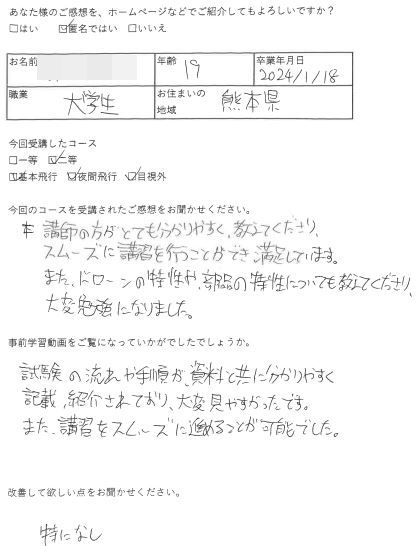 あなた様のご感想を、ホームページなどでご紹介してもよろしいですか？
□はい ☑匿名ではい □いいえ
お名前 年齢 19 卒業年月日 2024/1/18
職業 大学生 お住まいの地域 熊本県
今回受講したコース
□一等 ☑二等
☑基本飛行 ☑夜間飛行 ☑目視外
今回のコースを受講されたご感想をお聞かせください。
講師の方がとても分かりやすく、教えてくださり、
スムーズに講習を行うことができ満足しています。
また、ドローンの特性や、部品の特性についても教えてくださり、
大変勉強になりました。
事前学習動画をご覧になっていかがでしたでしょうか。
試験の流れや手順が、資料と共に分かりやすく
記載、紹介されており、大変見やすかったです。
また、講習をスムーズに進めることが可能でした。
改善して欲しい点をお聞かせください。
特になし